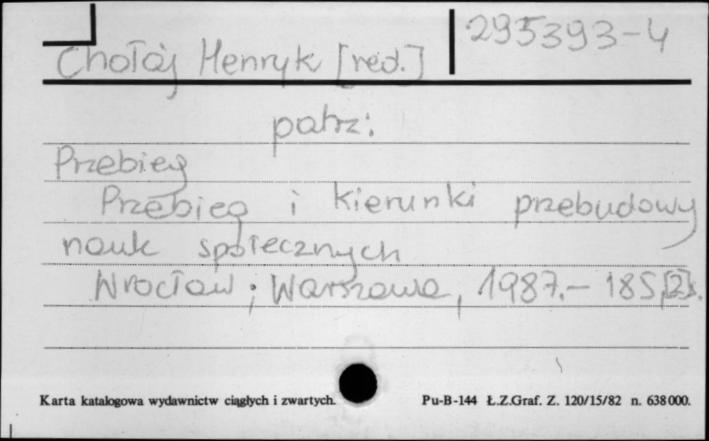 Chołaj Henryk [red.] 295393-4
patrz:
Przebieg
Przebieg i kierunki przebudowy
nauk społecznych
Wrocław; Warszawa, 1987.- 185,[2]s.
Karta katalogowa wydawnictw ciągłych i zwartych. Pu-B-144 Ł.Z.Graf. Z. 120/15/82 n. 638000.